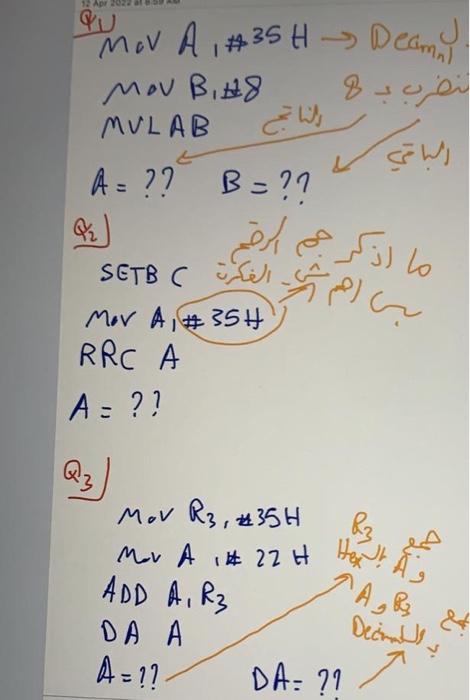 12 Apr 2022 at 8:59 AM
Q1
MOV A, #35H → Decimal لـ
MOV B, #8 نضرب بـ 8
MULAB الناتج
الباقي
A = ?? B = ??
Q2
ما اذكر جم الرقم
SETB C
بس اهم شي الفكرة
Mov A, #35H
RRC A
A = ??
Q3
Mov R3, #35H
Mov A, #22H
ADD A, R3
DA A
A = ?? DA = ??
جمع R3
و A بالـ Hex
جمع R3 و A
بالـ Decimal